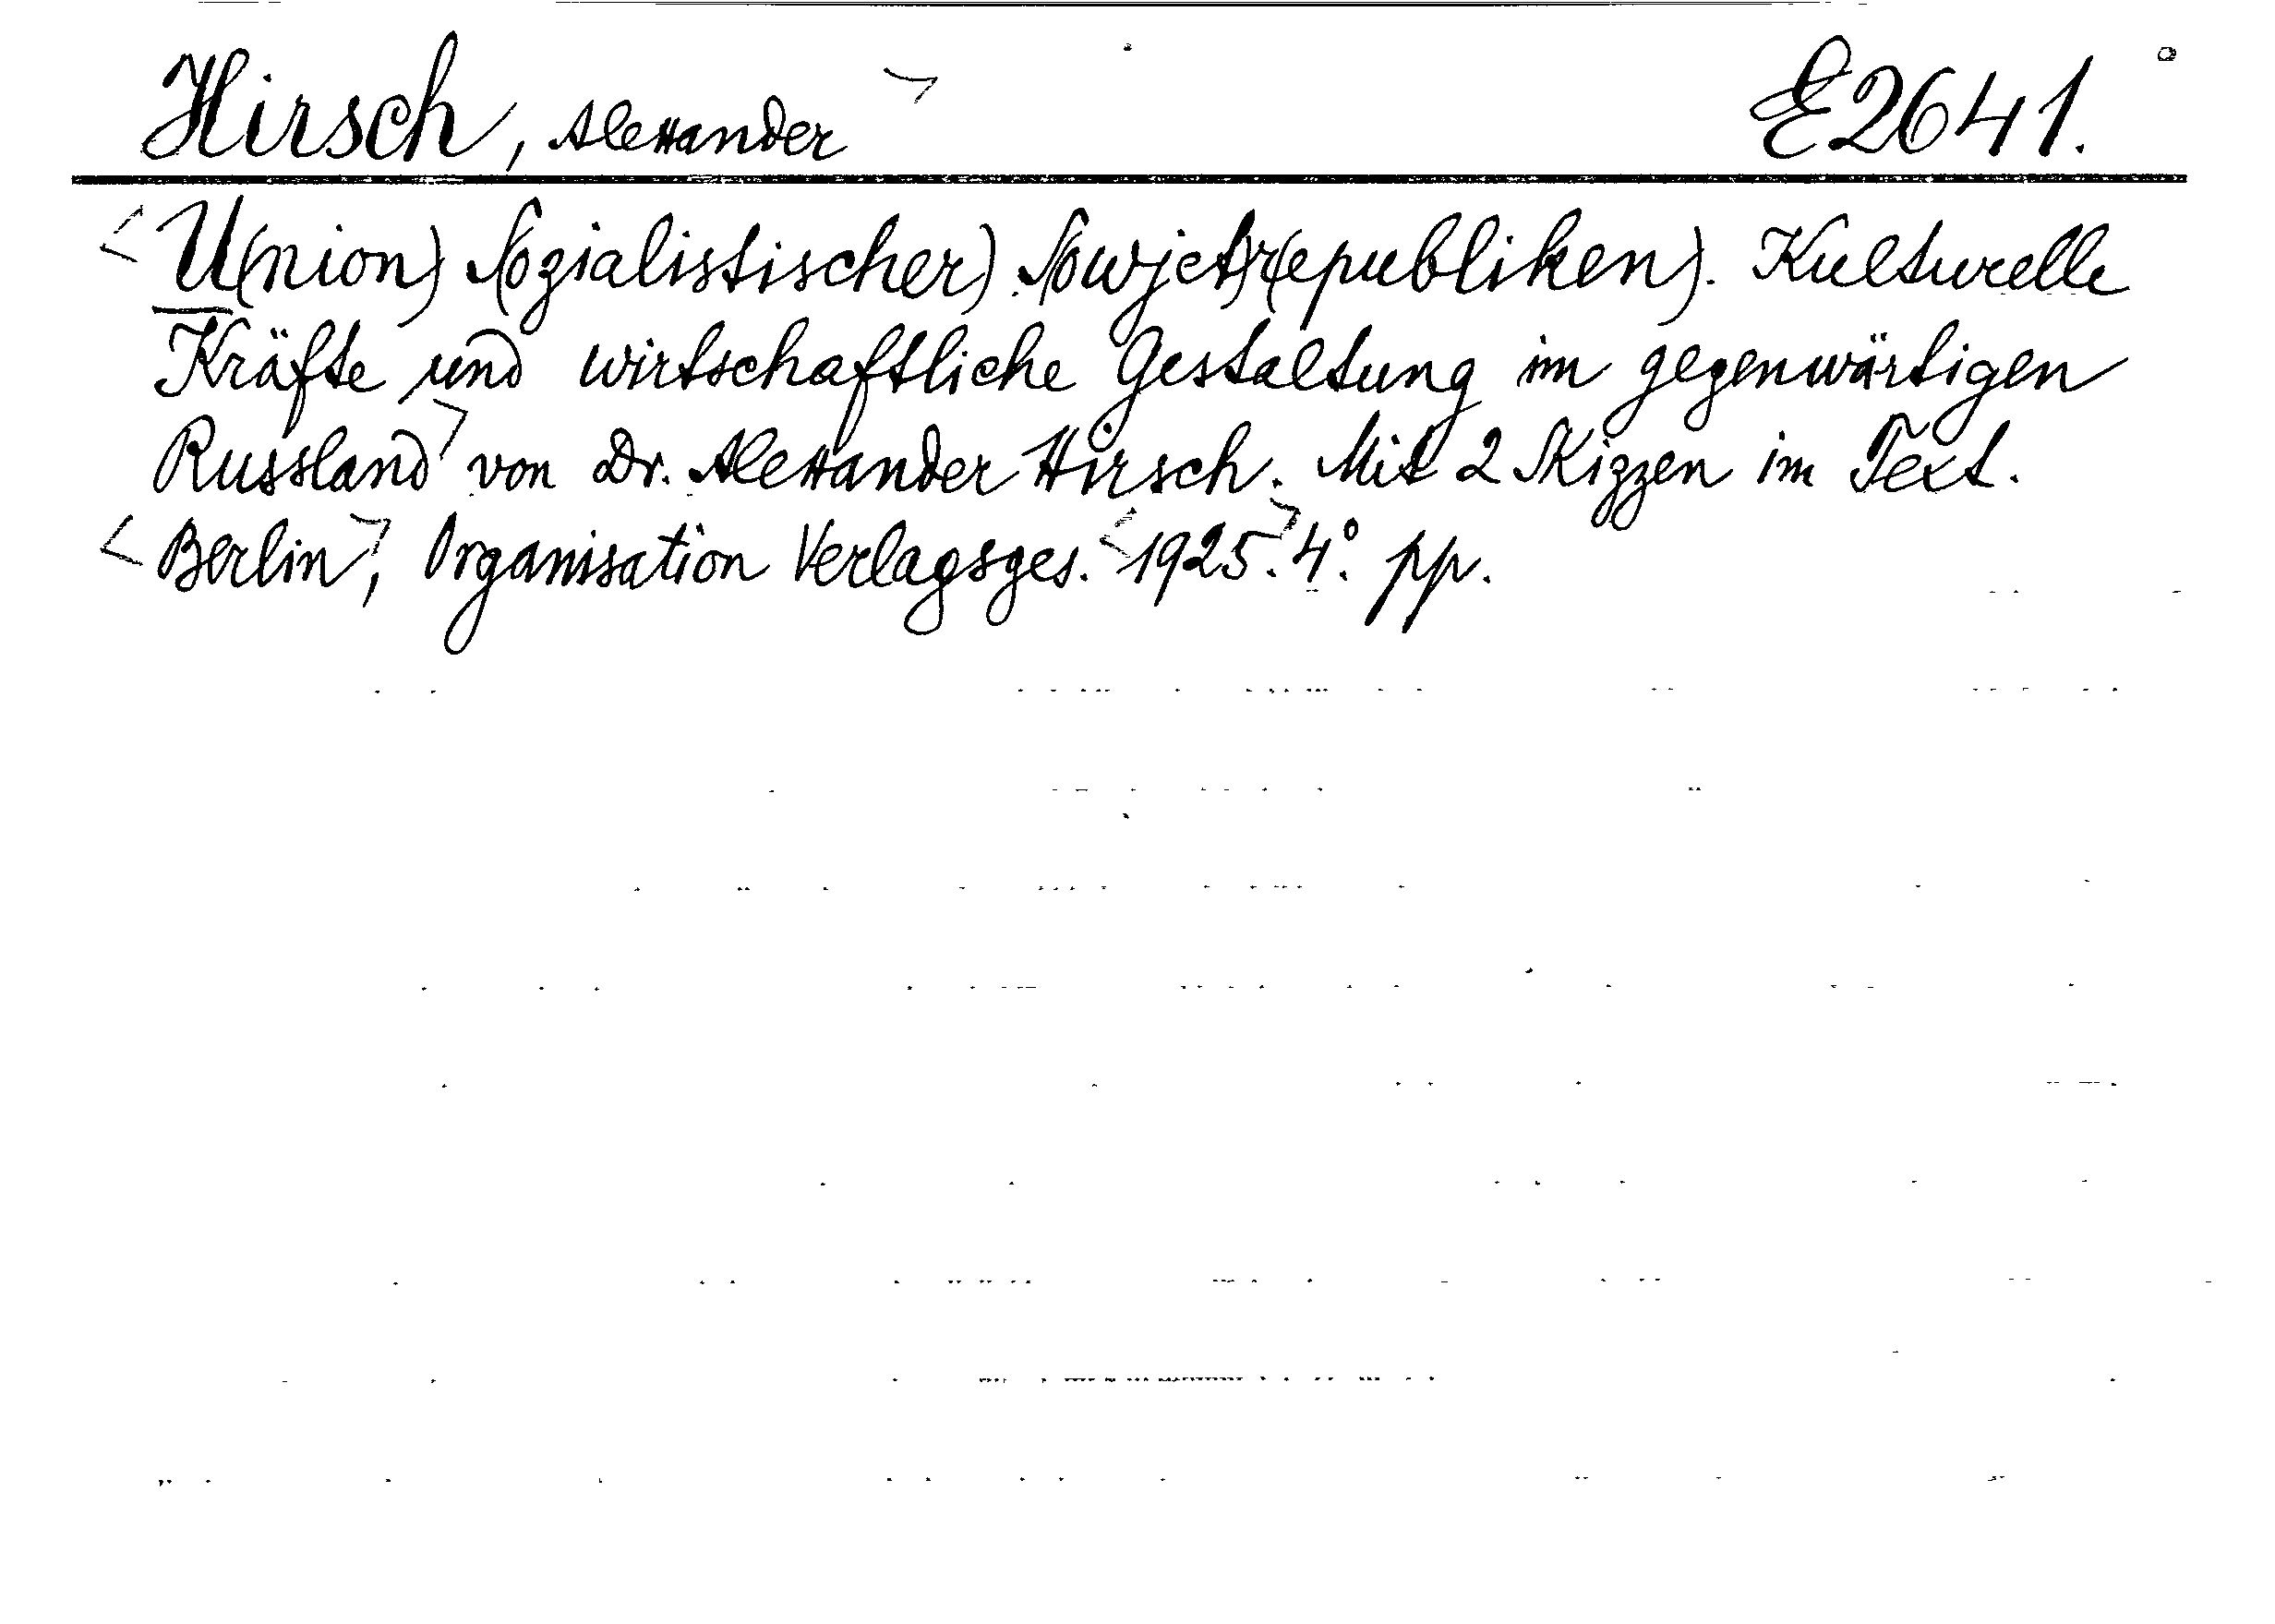 Hirsch, Alexander> E2641.
<U(nion) S(ozialistischer) S(owjet)r(epubliken). Kulturelle
Kräfte und wirtschaftliche Gestaltung im gegenwärtigen
Russland> von Dr. Alexander Hirsch. Mit 2 Skizzen im Text.
<Berlin>, Organisation Verlagsges. <1925.> 4°. pp.